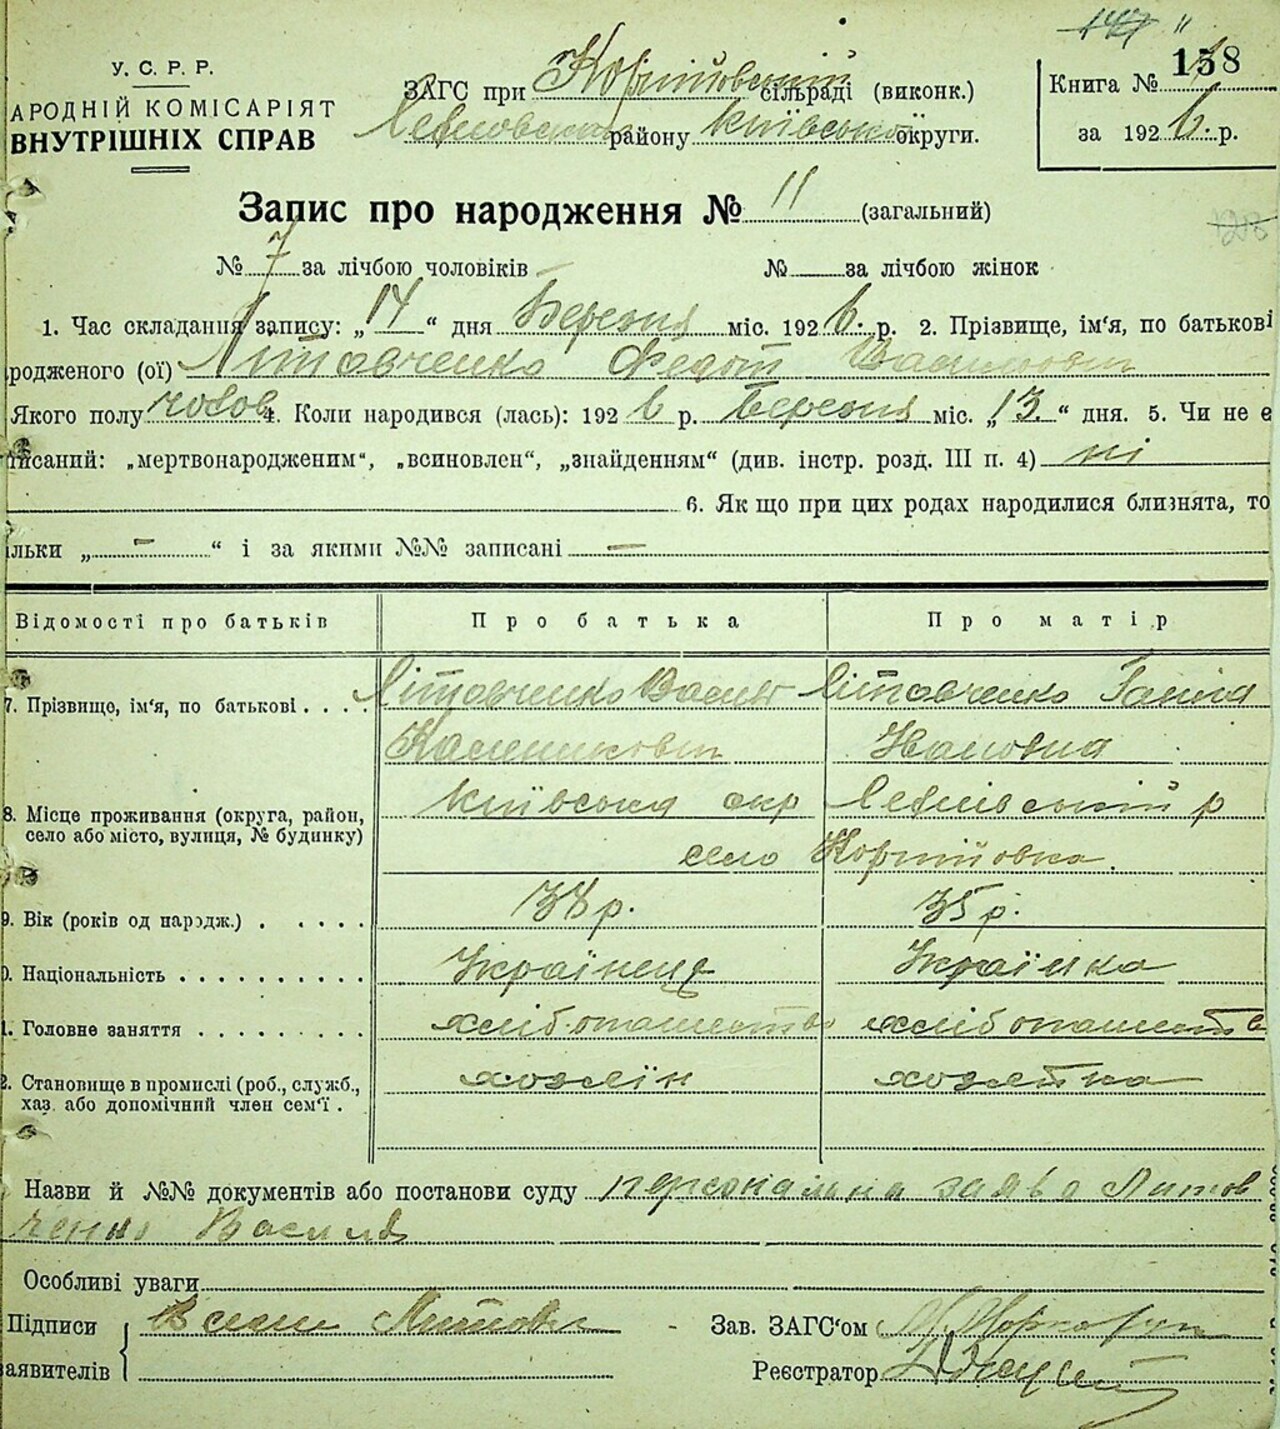 147 "
У. С. Р. Р.
АРОДНІЙ КОМІСАРІЯТ
ВНУТРІШНІХ СПРАВ
ЗАГС при Корніївській сільраді (виконк.)
району Київської округи.
Книга № 158
за 1926 р.
Запис про народження № 11 (загальний)
128
№ 7 за лічбою чоловіків — № за лічбою жінок
1. Час складання запису: „14“ дня Березня міс. 1926. р. 2. Прізвище, ім‘я, по батькові
родженого (ої) Літовченко Федот Васильович
Якого полу чолов. 4. Коли народився (лась): 1926 р. Березня міс. „13“ дня. 5. Чи не є
писаний: „мертвонародженим“, „всиновлен“, „знайденням“ (див. інстр. розд. III п. 4) ні
6. Як що при цих родах народилися близнята, то
ільки „ – “ і за якими №№ записані —
Відомості про батьків Про батька Про матір
7. Прізвище, ім‘я, по батькові . . . . Літовченко Василь Літовченко Ганна
Калиникович Ивановна
8. Місце проживання (округа, район, село або місто, вулиця, № будинку) Київська окр р
село Корніївка.
9. Вік (років од народж.) . . . . . 38 р. 35 р.
0. Національність . . . . . . . . . . Українець Українка
1. Головне заняття . . . . . . . . . хлібопашество хлібопашеств
2. Становище в промислі (роб., служб., хаз. або допомічний член сем‘ї . хозяїн хозяйка
Назви й №№ документів або постанови суду персональна заява Литов
ченко Василя
Особливі уваги
Підписи
заявителів
Зав. ЗАГС‘ом
Реєстратор